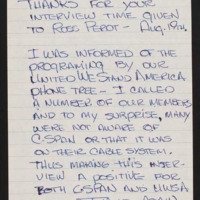 THANKS FOR YOUR
INTERVIEW TIME GIVEN
TO ROSS PEROT - AUG. 19TH.
I WAS INFORMED OF THE
PROGRAMING BY OUR
UNITED WE STAND AMERICA
PHONE TREE - I CALLED
A NUMBER OF OUR MEMBERS
AND TO MY SURPRISE, MANY
WERE NOT AWARE OF
C-SPAN OR THAT IT WAS
ON THEIR CABLE SYSTEM.
THUS MAKING THIS INTER-
VIEW A POSITIVE FOR
BOTH C-SPAN AND UWSA
AGAIN